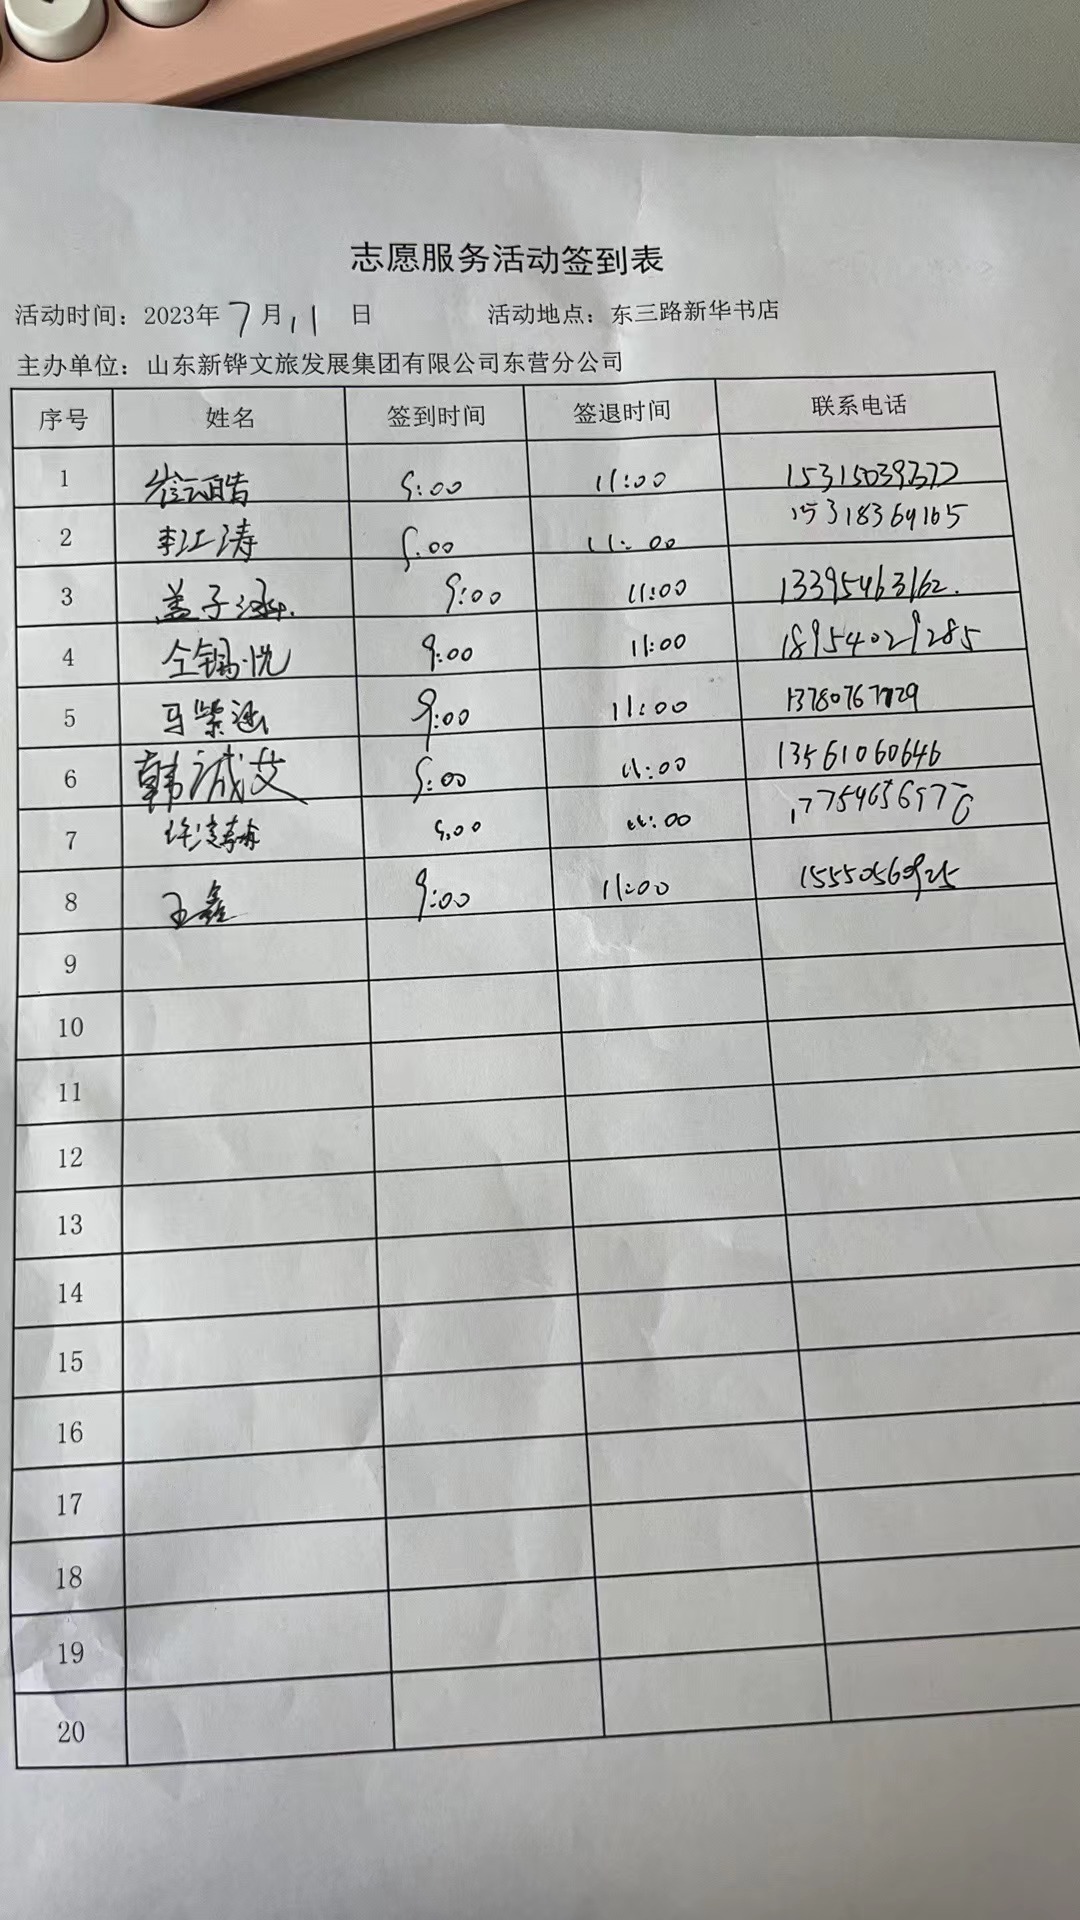 志愿服务活动签到表
活动时间：2023年7月11日 活动地点：东三路新华书店
主办单位：山东新铧文旅发展集团有限公司东营分公司
序号 姓名 签到时间 签退时间 联系电话
1 9:00 11:00
2 李江涛 9:00 11:00 15318369165
3 盖子涵 9:00 11:00 13395463162
4 仝锡悦 9:00 11:00 18954029285
5 马紫涵 9:00 11:00
6 韩诚艾 9:00 11:00 13561060646
7 9:00 11:00
8 王鑫 9:00 11:00 15550560925
9
10
11
12
13
14
15
16
17
18
19
20